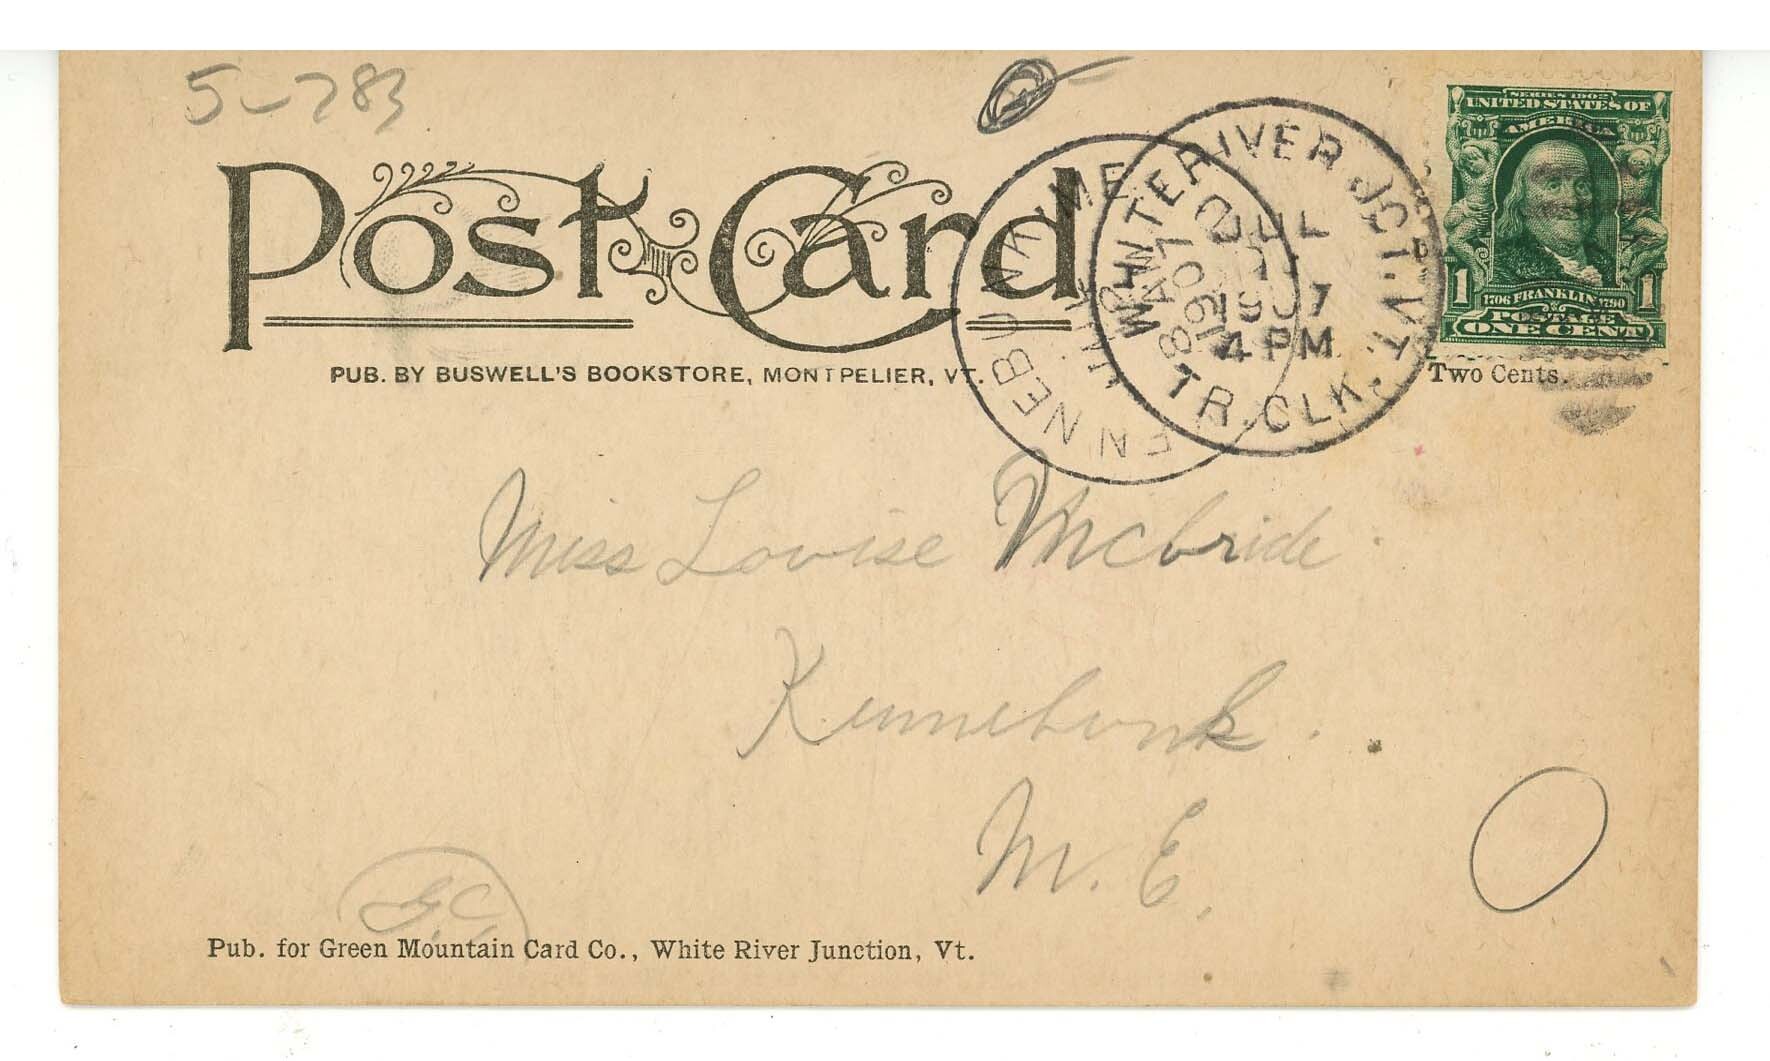 5-783
Post Card
PUB. BY BUSWELL'S BOOKSTORE, MONTPELIER, VT.
WHITE RIVER JCT. VT.
JUL
1907
4 PM
TR. CLK.
KENNEBUNK ME
JUL
8 AM
1907
SERIES 1902
UNITED STATES OF
AMERICA
1 1706 FRANKLIN 1790 1
POSTAGE
ONE CENT
Two Cents.
Miss Louise Mcbride.
Kennebunk.
M. E.
G.C.
Pub. for Green Mountain Card Co., White River Junction, Vt.